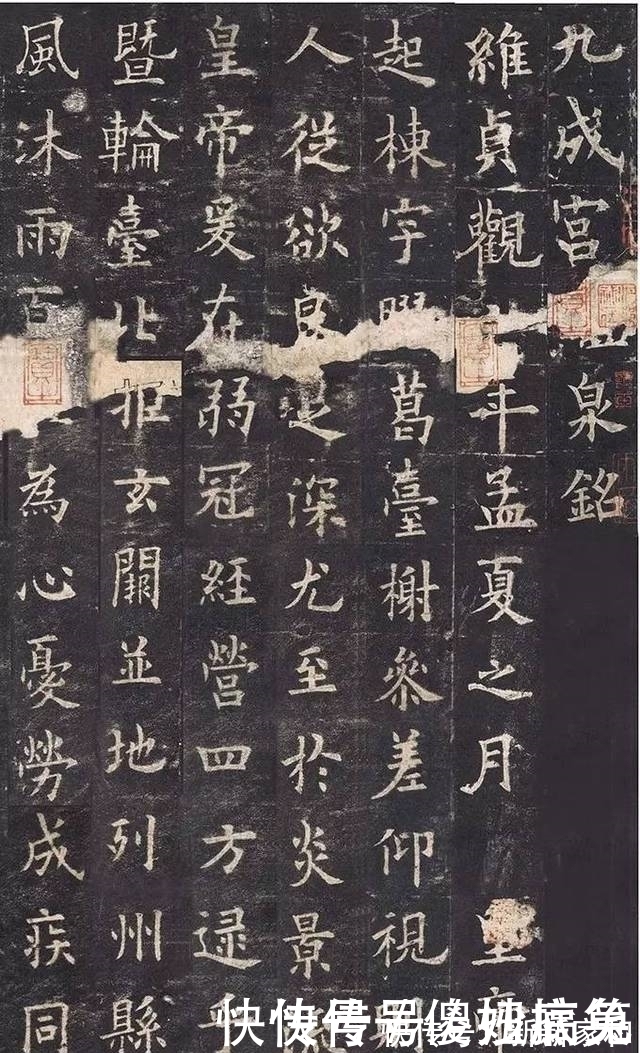 九成宮泉銘
維貞觀年孟夏之月
起棟宇葛臺榭參差仰視
人從欲良足深尤至於炎景
皇帝爰在弱冠經營四方逮乎
暨輪臺北拒玄闕並地列州縣
風沐雨百為心憂勞成疾同